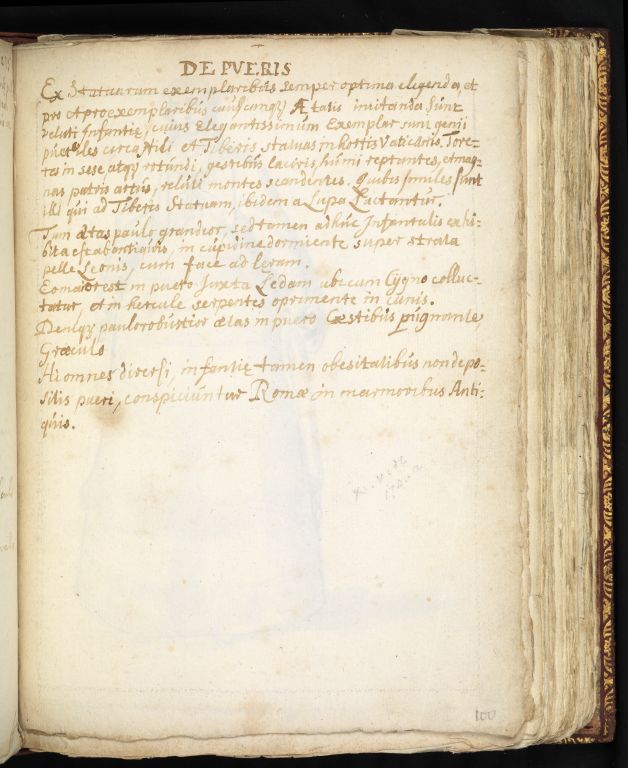 DE PVERIS
Ex Statuarum exemplaribus semper optima eligenda, et
pro et pro exemplaribus cuiuscanqȝ Ætatis imitanda sunt
veluti Infantiæ, cuius Elegantissimum Exemplar sunt genii
circa Nili et Tiberis statuas in hortis Vaticanis. Tore-
ti in sese atqȝ rotundi, gestibus lacivis, humi reptantes, et mag-
nas patris artus, veluti montes scandentes. Quibus similes sunt
illi qui ad Tiberis Statuam, ibidem a Lupa Lactantur.
Tum ætas paulo grandior, sed tamen adhuc Infantulis exhi-
bita est ab antiquis, in cupidine dormiente super strata
pelle Leonis, cum face ad
Eo maior est in puero Juxta Ledam ubi cum Cygno colluc-
tatur, et in hercule serpentes opprimente in cunis.
Deniqȝ paulo robustior ætas in puero Cæstibus pugnante,
Græculo
Hi omnes diversi, infantiæ tamen obesitatibus non depo-
sitis pueri, conspiciuntur Romæ in marmoribus Anti-
quis.
100